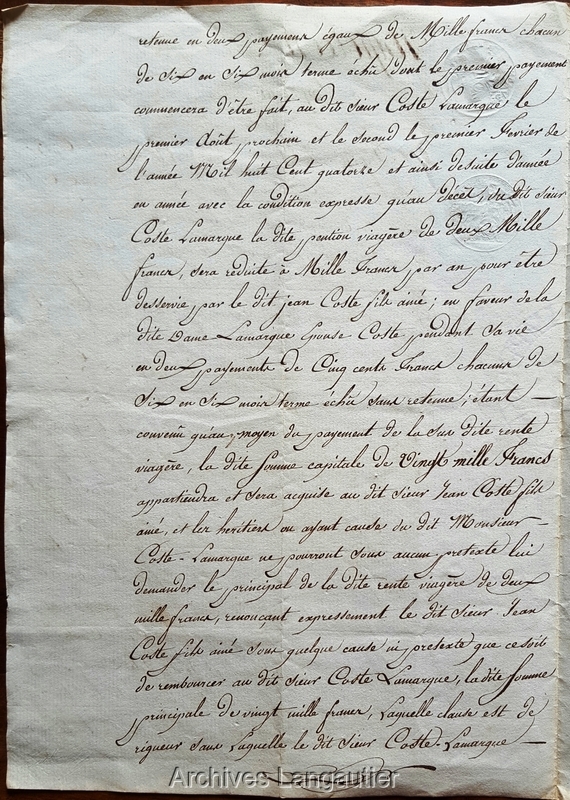 retenue en deux payemens égaux de Mille francs chacun
de Six en Six mois terme échû dont le premier payement
commencera d'être fait, au dit sieur Coste Lamarque le
premier Août prochain et le second le premier Fevrier de
l'année Mil huit Cent quatorze et ainsi desuite d'année
en année avec la condition expresse qu'au décèt, du dit Sieur
Coste Lamarque la dite pention viagère de deux Mille
francs, sera reduite à Mille Francs, par an pour être
desservie, par le dit jean Coste fils ainé; en faveur de la
dite Dame Lamarque Epouse Coste, pendant Sa vie
en deux payements de Cinq cents Francs chacuns de
Six en Six mois terme échû sans retenue; étant —
convenû qu'au moyen du payement de la sus dite rente
viagère, la dite Somme capitale de Vingt mille Francs
appartiendra et sera acquise au dit Sieur Jean Coste fils
ainé, et les heritiers ou ayant cause du dit Monsieur —
Coste-Lamarque ne pourront sous aucun pretexte lui
demander le principal de la dite rente viagère de deux
mille francs, renoncant expressement le dit sieur Jean
Coste fils ainé sous quelque cause ni pretexte que ce soit
de rembourcer au dit Sieur Coste Lamarque, la dite Somme
principale de vingt mille francs, Laquelle clause est de
rigueur sans Laquelle le dit Sieur Coste-Lamarque —
Archives Langautier